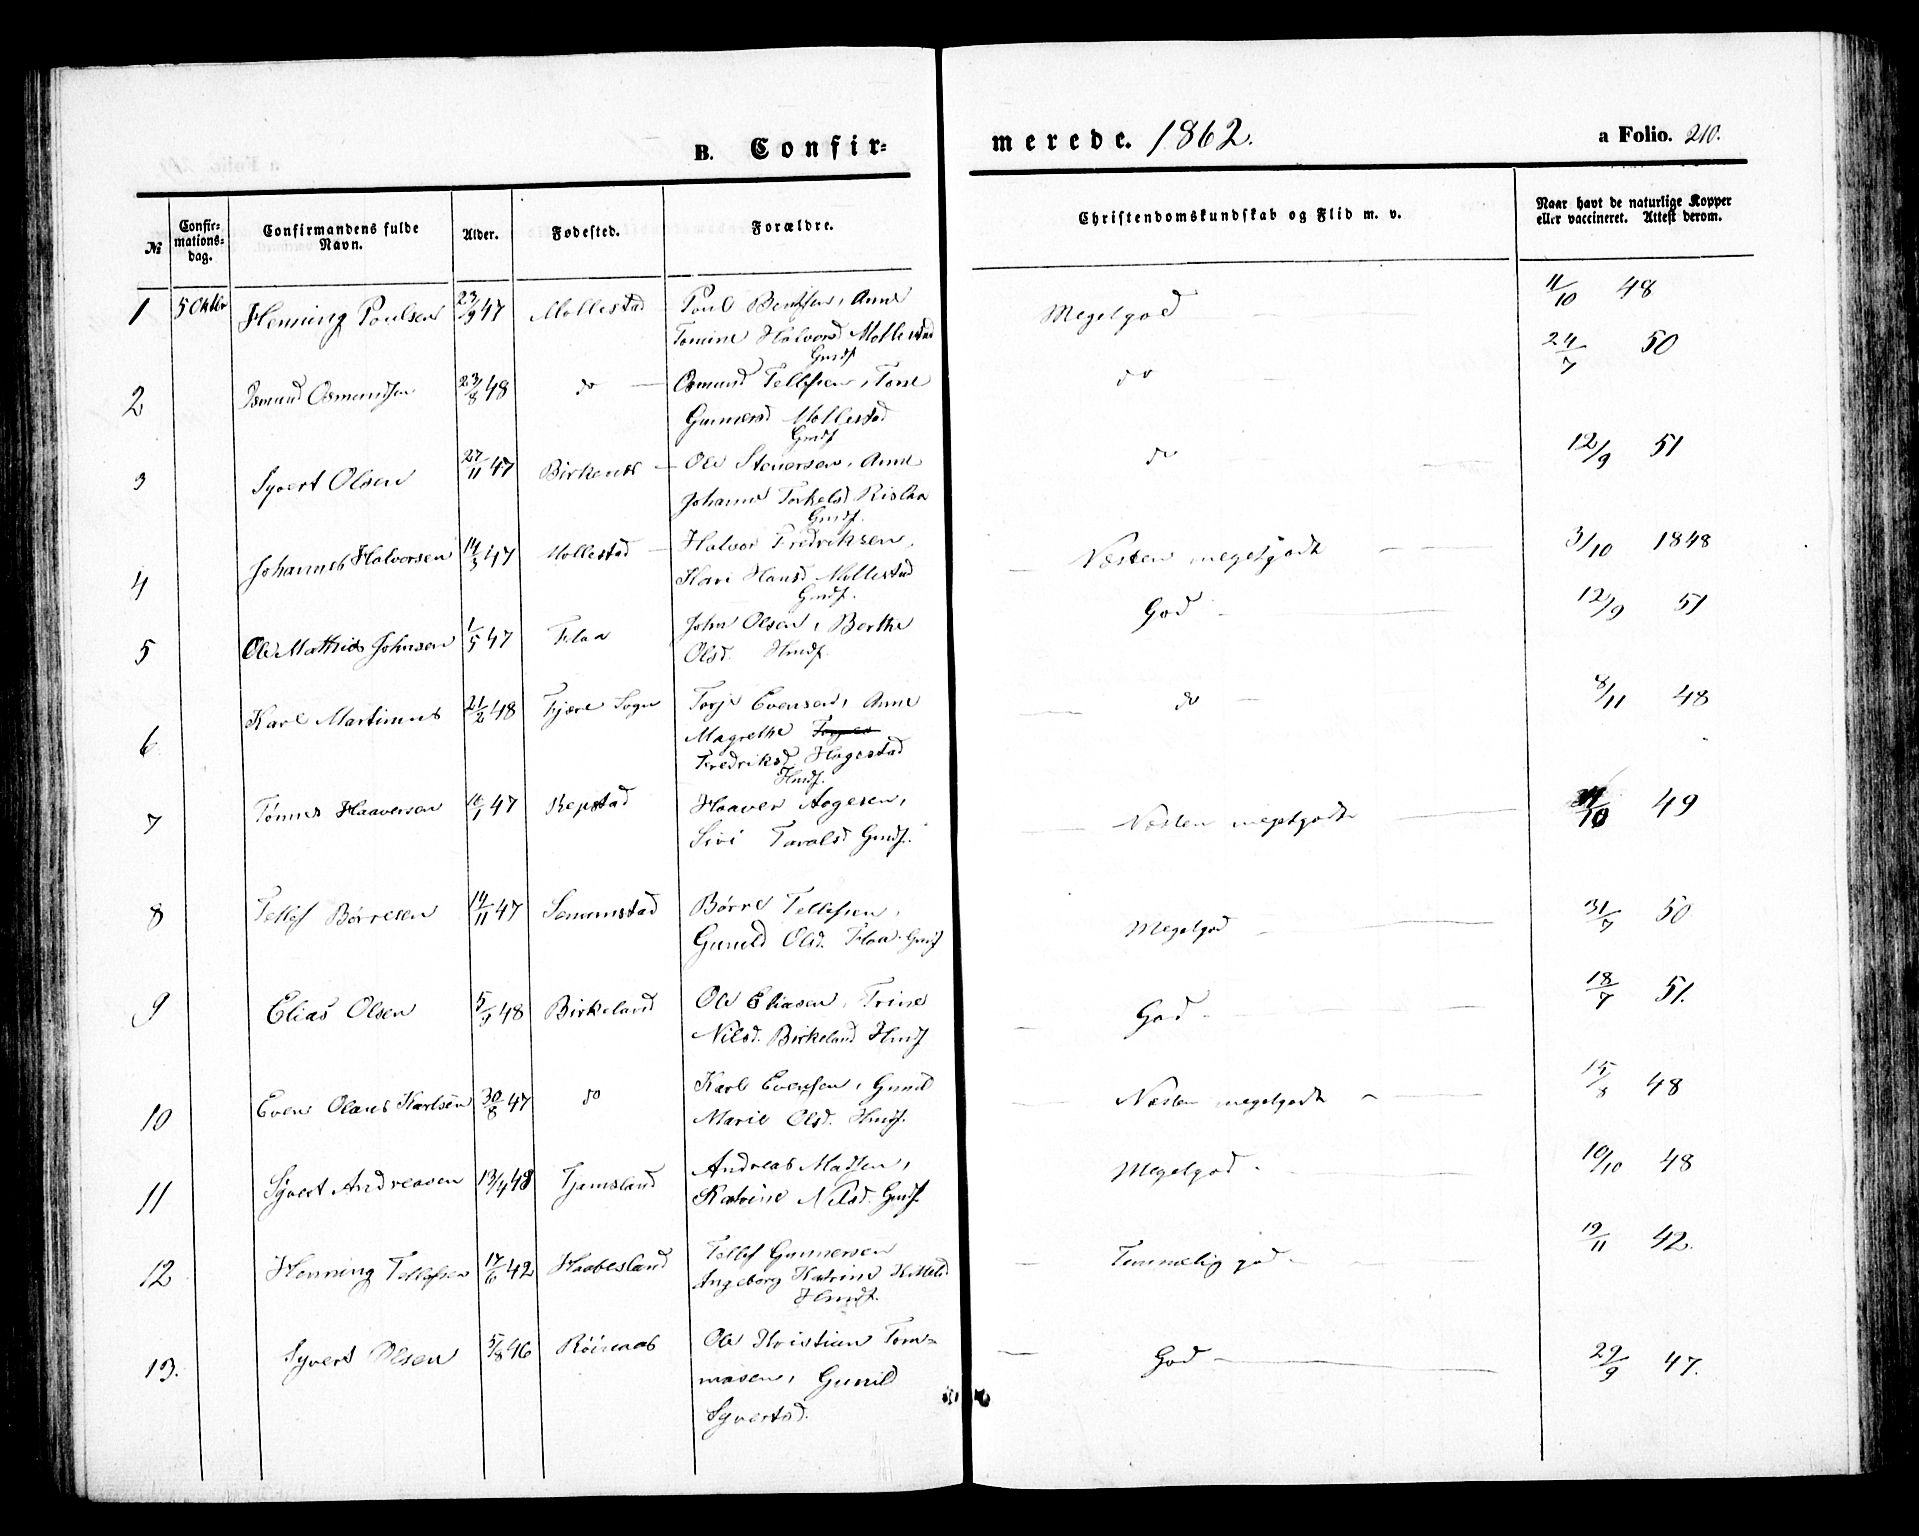 B. Confir-
merede. 1862.
a Folio. 210.
№
Confir-
mations-
dag.
Confirmandens fulde
Navn.
Alder.
Fødested.
Forældre.
Christendomskundskab og Flid m. v.
Naar havt de naturlige Kopper
eller vaccineret. Attest derom.
1 5 Oktbr Henning Poulsen 23/9 47 Mollestad Poul Bentsen, Anne Megetgod 11/10 48
Tomine Halvorsd Mollestad
Gmdf
2 Osmund Osmundsen 23/8 48 do Osmund Tellefsen, Tone do 24/7 50
Gunnersd Mollestad
Gmdf
3 Syvert Olsen 27/11 47 Birkenes Ole Stenersen, Anne do 12/9 51
Johanne Torkelsd Rislaa
Gmdf.
4 Johannes Halvorsen 14/3 47 Mollestad Halvor Fredriksen, Næsten megetgodt 3/10 1848
Kari Hansd Mollestad
Gmdf.
5 Ole Mathias Johnsen 1/5 47 Flaa John Olsen, Berthe God 12/9 51
Olsd. Hmdf.
6 Karl Martinus 21/2 48 Fjære Sogn Torje Evensen, Anne do 8/11 48
Magrethe
Fredriksd Hagestad
Hmdf.
7 Tønnes Haaversen 16/1 47 Repstad Haaver Aagesen, Næsten megetgodt /10 49
Sivi Taralsd Gmdf.
8 Tellef Børresen 14/11 47 Senumstad Børre Tellefsen, Megetgod 31/7 50
Gunild Olsd. Flaa. Gmdf
9 Elias Olsen 5/9 48 Birkeland Ole Eliasen, Trine God 18/7 51.
Nilsd. Birkeland Hmdf
10 Even Olaus Karlsen 30/8 47 do Karl Evensen, Gunild Næsten megetgodt 15/8 48
Marie Olsd. Hmdf.
11 Syvert Andreasen 13/4 48 Tjamsland Andreas Madsen, Megetgod 10/10 48
Katrine Nilsd. Gmdf.
12 Henning Tellefsen 17/6 42 Haabesland Tellef Gunnersen Temmelig god 19/11 42.
Angeborg Katrine Kittelsd
Hmdf.
13. Syvert Olsen 5/8 46 Röisenas Ole Kristian Tom- God 29/9 47.
masen, Gunild
Syvertsd.